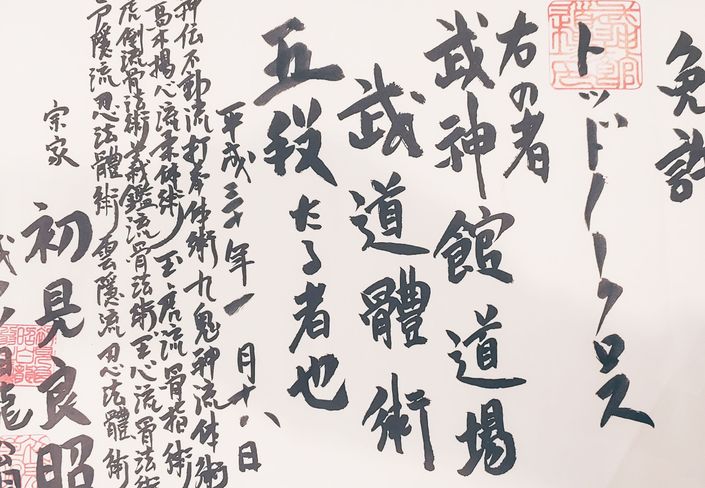 免許
トッドノークロス
右の者
武神館道場
武道體術
五段たる者也
平成三十年一月十八日
神伝不動流打拳体術 九鬼神流体術
高木揚心流柔体術 玉虎流骨指術
虎倒流骨法術 義鑑流骨法術 玉心流骨法術
戸隠流忍法體術 雲隠流忍法體術
宗家
初見良昭